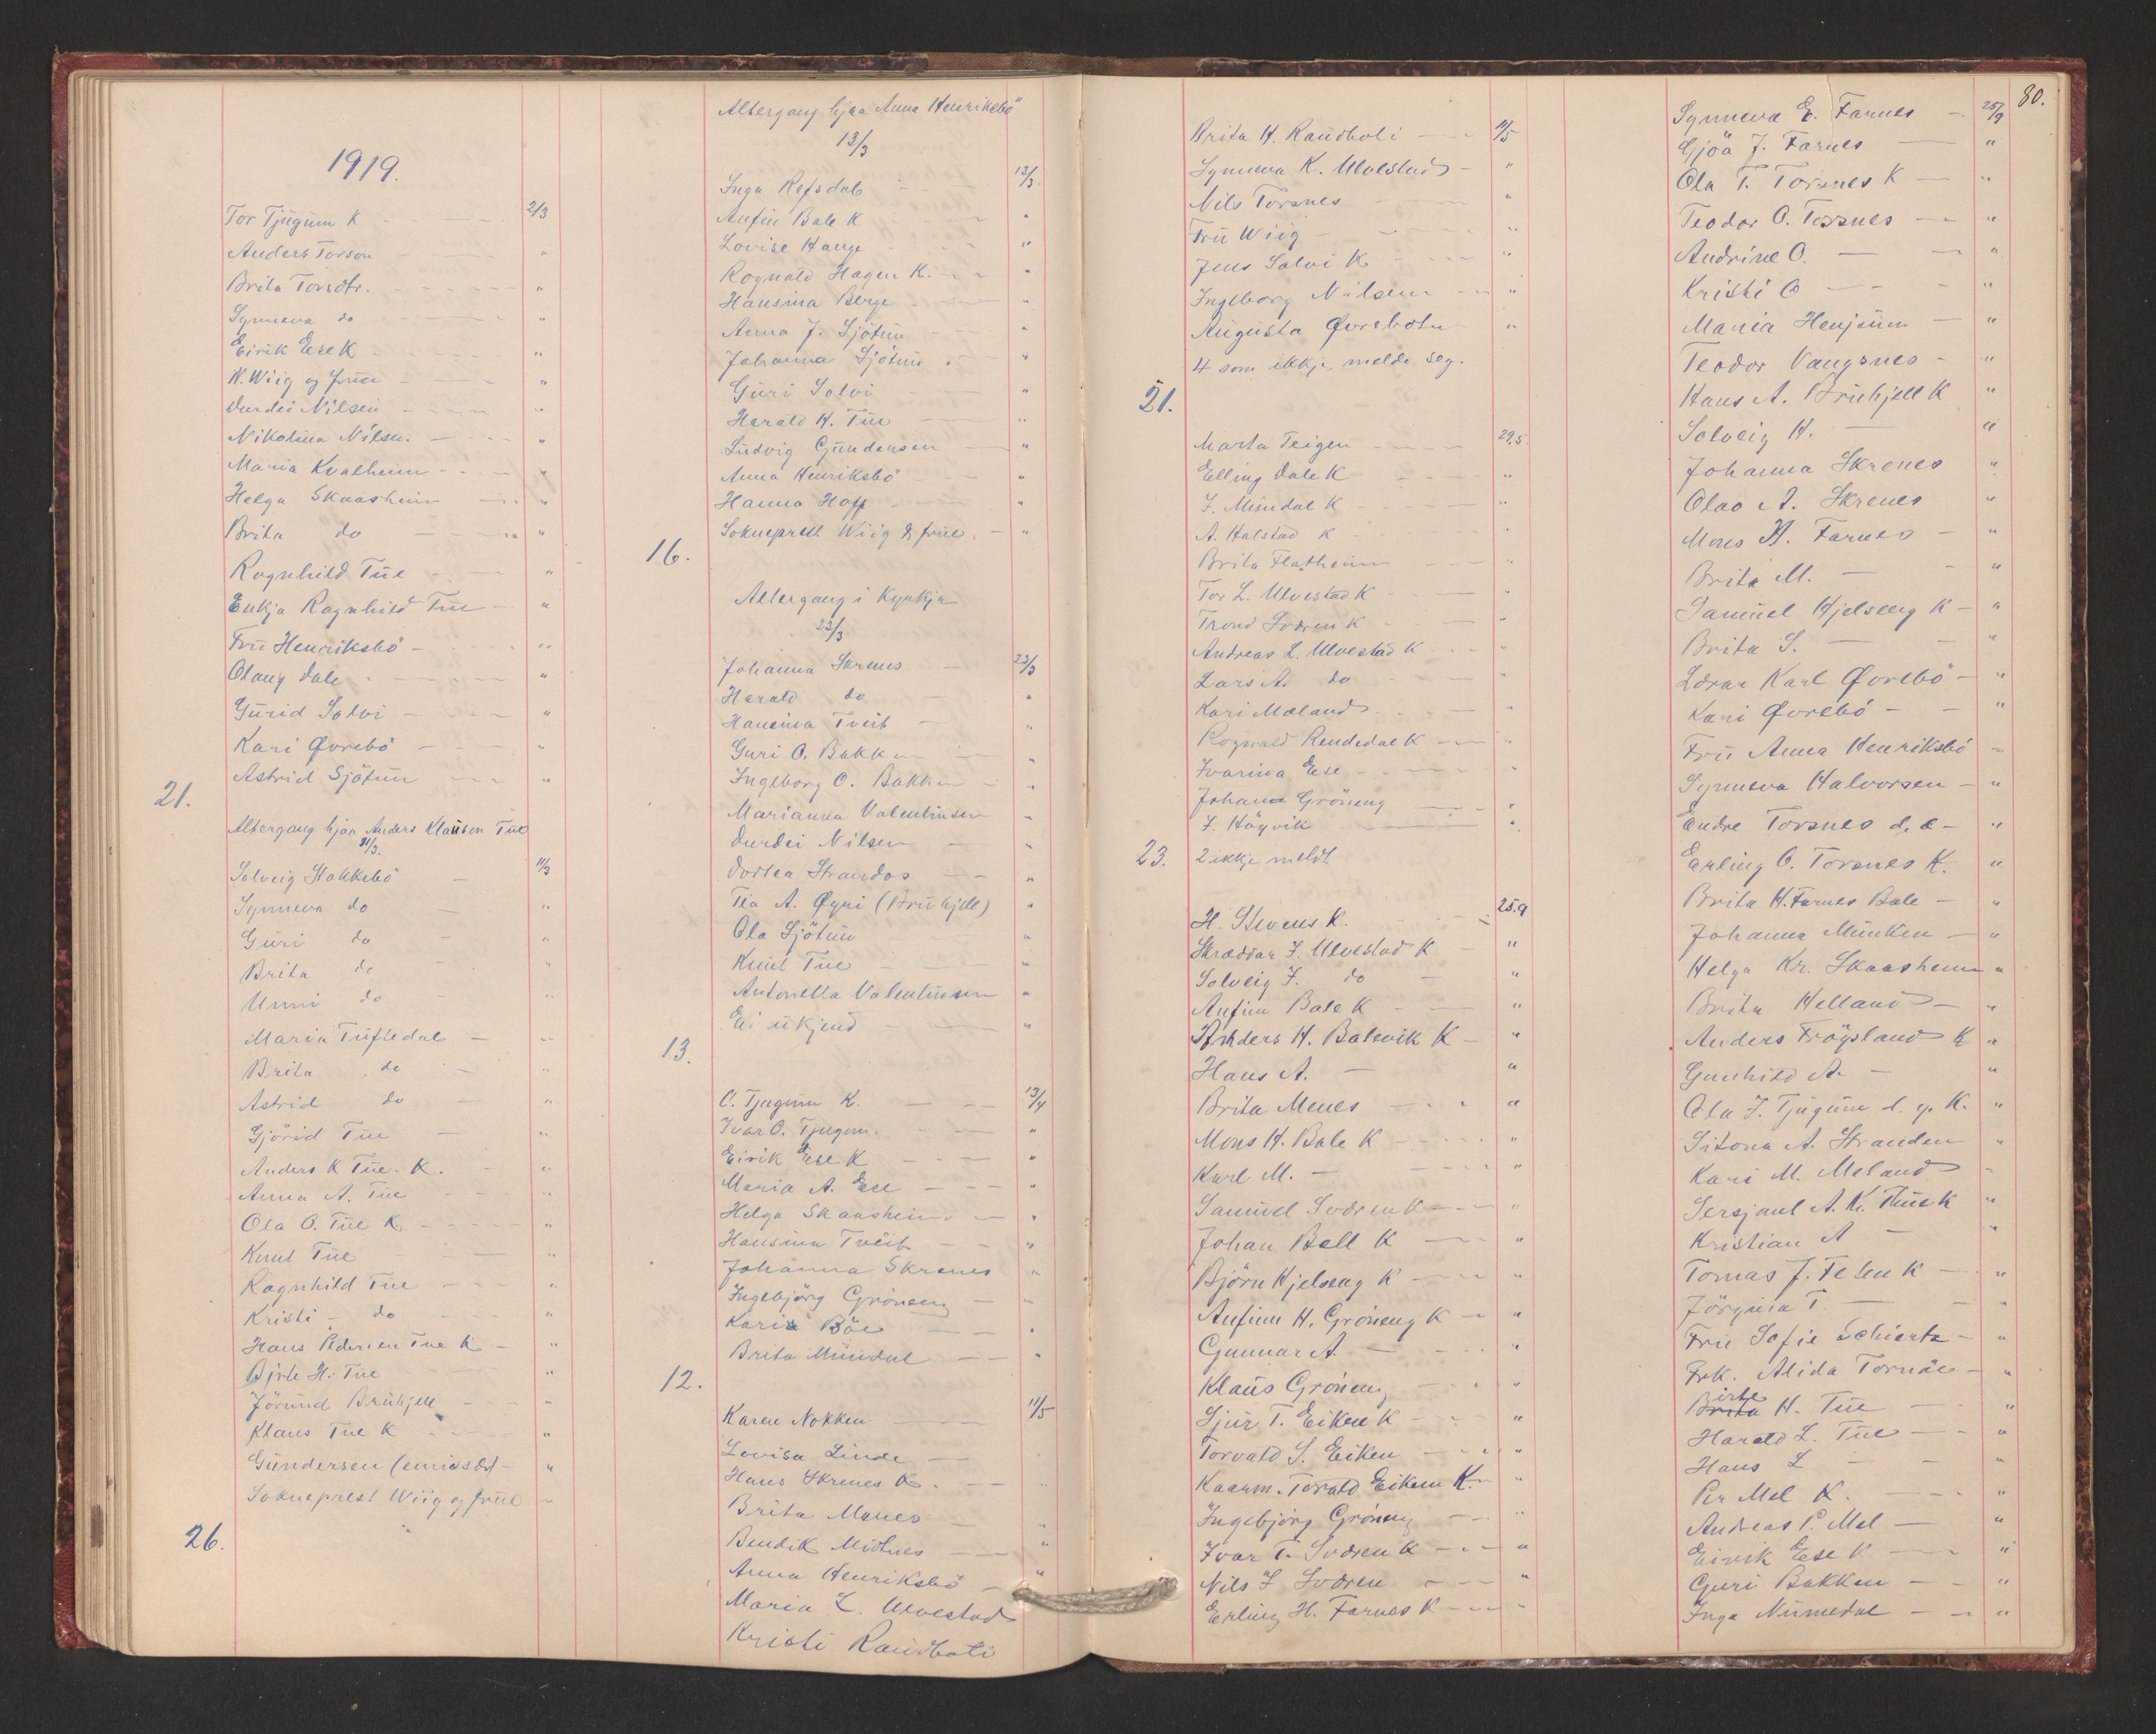 1919.
Tor Tjugum K - — 2/3
Anders Torson — "
Brita Torsdtr. — "
Synneva do — "
Eirik Ese K — "
N. Wiig og frue — "
Durdei Nilsen — "
Nikolina Nilsen — "
Maria Kvalheim — "
Helga Skaasheim — "
Brita do — "
Ragnhild Tue — "
Enkja Ragnhild Tue — "
Fru Henriksbö — "
Olaug Dale — "
Gurid Solvi — "
Kari Øvrebö — "
Astrid Sjötun — "
21.
Altergang hjaa Anders Klausen Tue
11/3.
Solveig Stokkebö — 11/3
Synneva do — "
Guri do — "
Brita do — "
Unni do — "
Maria Tuftedal — "
Brita do — "
Astrid do — "
Gjörid Tue — "
Anders K Tue. K. — "
Anna A. Tue — "
Ola O. Tue K — "
Knut Tue — "
Ragnhild Tue — "
Kristi do — "
Hans Pedersen Tue K — "
Birte H. Tue "
Jörund Bruhjell — "
Klaus Tue K — "
Gundersen — "
Sokneprest Wiig og frue —
26.
Altergang hjaa Anna Henriksbö
13/3
Inga Refsdal — 13/3.
Anfin Bale K — "
Lovise Hauge — "
Rognald Hagen K. — "
Hansina Berge — "
Anna J. Sjötun — "
Johanna Sjötun — "
Guri Solvi — "
Harald H. Tue — "
Ludvig Gundersen — "
Anna Henriksbö — "
Hanna Hopp — "
Sokneprest Wiig & frue. — "
16.
Altergang i Kyrkja
23/3
Johanna Skrenes — 23/3
Harald do — "
Hansina Tveit — "
Guri O. Bakken — "
Ingeborg O. Bakken — "
Marianna Valentinsen "
Durdei Nilsen — "
Dortea Strandos — "
Tea A. Øyri (Bruhjell) "
Ola Sjötun "
Knut Tue — "
Antonetta Valentinsen "
Ei ukjend — "
13.
O. Tjugum K. — 13/4
Ivar O. Tjugum. — "
Eirik Ese K — "
Maria A. Ese — "
Helga Skaasheim — "
Hansina Tveit — "
Johanna Skrenes "
Ingebjörg Gröneng — "
Kari Böe — "
Brita Mundal — "
12.
Karen Nokken — 11/5
Lovisa Linde —
Hans Skrenes K. — "
Brita Menes — "
Bendik Midtnes — "
Anna Henriksbö — "
Maria L. Ulvestad
Kristi Raudboti
Brita H. Raudboti — 11/5
Synneva K. Ulvestad — "
Nils Torsnes — "
Fru Wiig — "
Jens Solvi K — "
Ingeborg Nilsen — "
Augusta Øvrebotn "
4 som ikkje melde seg.
21.
Marta Teigen — 29.5.
Elling Dale K — "
J. Mundal K — "
A. Halstad K "
Brita Flatheim — "
Tor L. Ulvestad K — "
Trond Sværen K — "
Andreas L. Ulvestad K — "
Lars A. do — "
Kari Mæland — "
Rognald Rendedal K — "
Ivarina Ese — "
Johan Gröneng — "
J. Högvik — "
23. 2 ikkje meldt
H. Stevens K. — 25.9
Skræddar J. Ulvestad K — "
Solveig J. do — "
Anfinn Bale K — "
Anders H. Balevik K — "
Hans A. — "
Brita Menes — "
Mons H. Bale K — "
Karl M. — "
Samuel Sværen K — "
Johan Bell K — "
Björn Hjelseng K — "
Anfinn H. Gröneng K — "
Gunnar A. — "
Klaus Gröneng — "
Sjur T. Eiken K — "
Torvald S. Eiken — "
Kaarm. Torvald Eiken K. — "
Ingebjörg Gröneng — "
Ivar T. Sværen K — "
Nils J Sværen — "
Erling H. Farnes K — "
80.
Synneva E. Farnes — 25/9
Gjöa J. Farnes — "
Ola T. Torsnes K — "
Teodor O. Torsnes — "
Andrine O. — "
Kristi O — "
Maria Henjum — "
Teodor Vangsnes — "
Hans A. Bruhjell K "
Solveig H. — "
Johanna Skrenes "
Olav A. Skrenes "
Mons H. Farnes — "
Brita M. — "
Samuel Hjelseng K — "
Brita S. — "
Lærar Karl Øvrebö — "
Kari Øvrebö — "
Fru Anna Henriksbö —
Synneva Halvorsen — "
Endre Torsnes d. e. — "
Erling O. Torsnes K. "
Brita H. Farnes Bale — "
Johanna Munken — "
Helga Kr. Skaasheim "
Brita Helland — "
Anders Fröysland K "
Gunhild A. — "
Ola J. Tjugum d. y. K. "
Sitona A. Stranden "
Kari M. Meland —
Sersjant A. K. Thue K "
Kristian A — "
Tomas J. Feten K — "
Jörgina T. — "
Fru Sofie Schiertz — "
Frk. Alida Tornöe — "
Birte H. Tue — "
Harald L. Tue — "
Hans L — "
Per Mel K. — "
Andreas P. Mel — "
Eirik Ese K — "
Guri Bakken — "
Inga Numedal — "